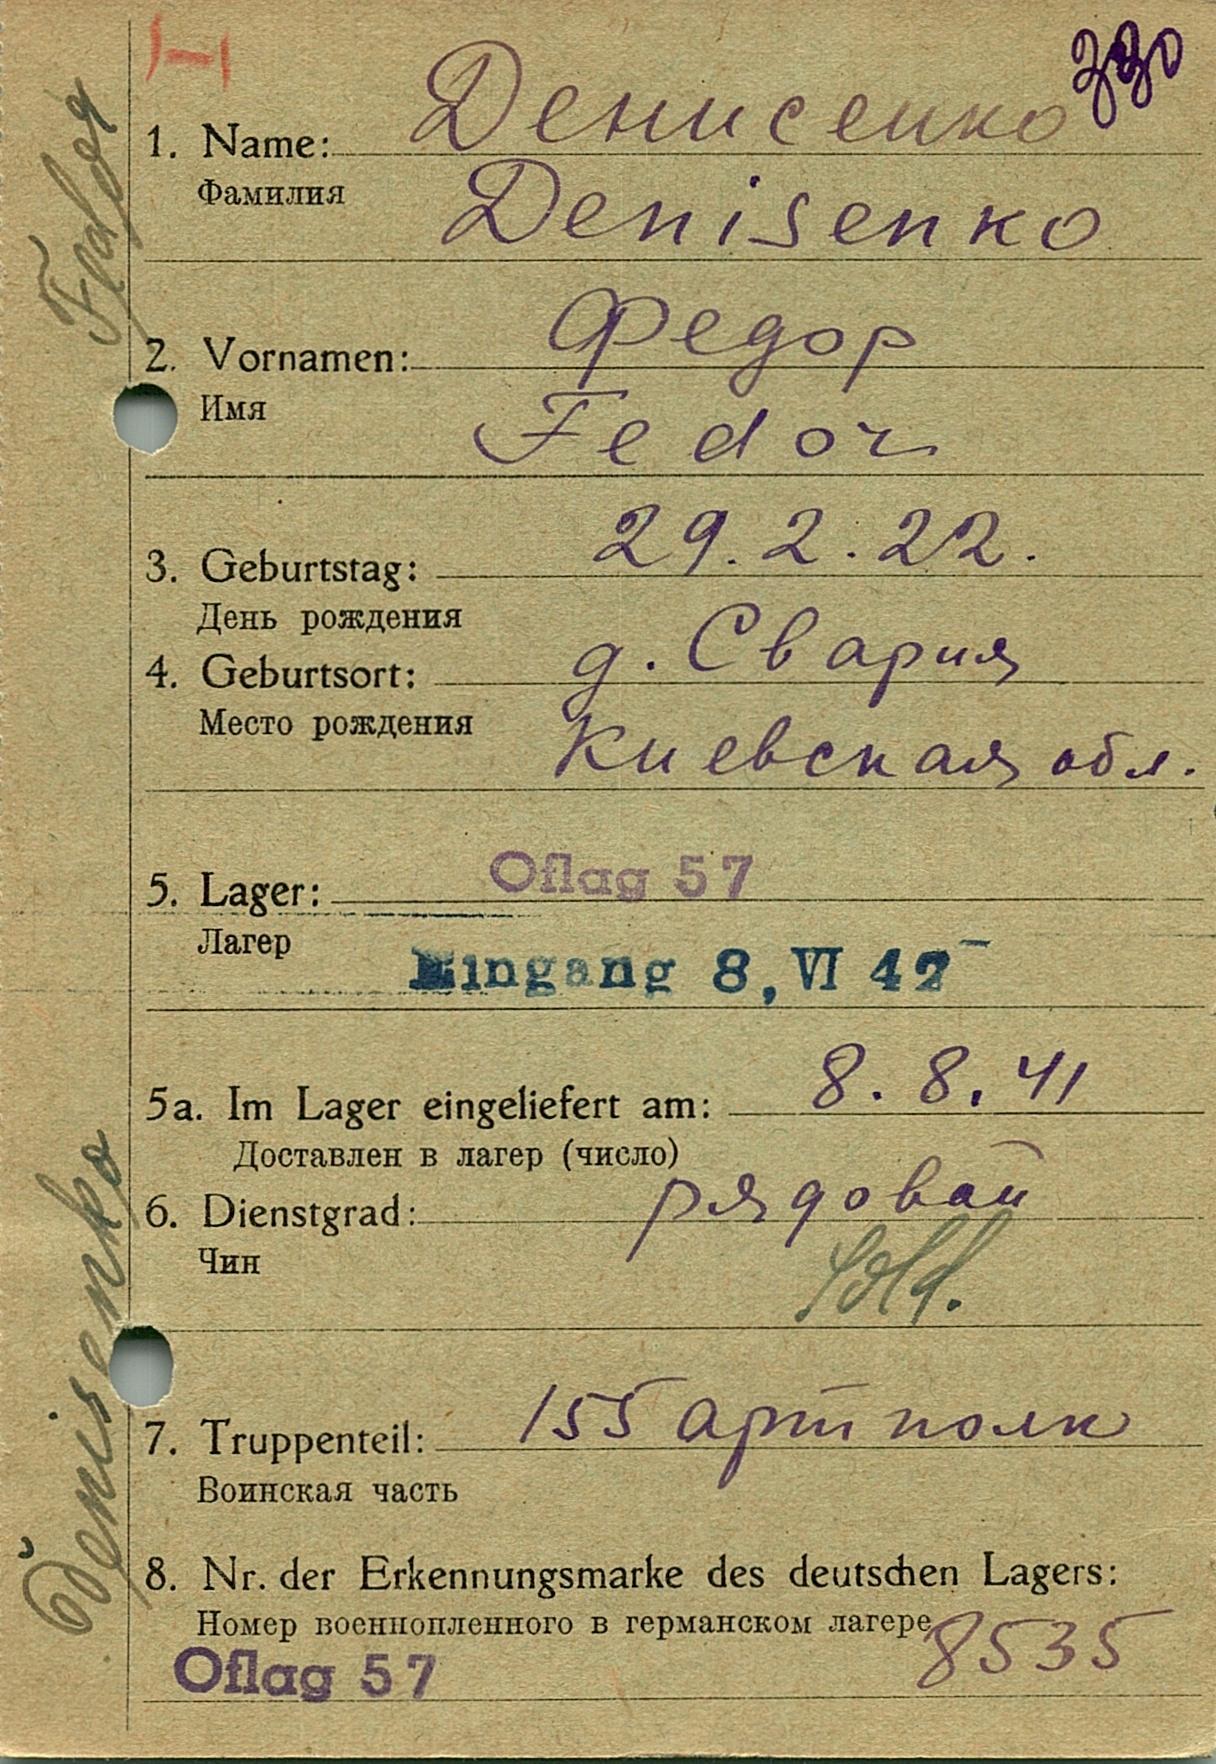 330
1. Name: Денисенко
Фамилия Denisenko
2. Vornamen: Федор
Имя Fedor
3. Geburtstag: 29.2.22.
День рождения
4. Geburtsort: д. Свария
Место рождения Киевская обл.
5. Lager: Oflag 57
Лагер
Eingang 8, VI 42
5a. Im Lager eingeliefert am: 8.8.41
Доставлен в лагер (число)
6. Dienstgrad: рядовой
Чин Sold.
7. Truppenteil: 155 арт полк
Воинская часть
8. Nr. der Erkennungsmarke des deutschen Lagers:
Номер военнопленного в германском лагере 8535
Oflag 57
Denisenko Fedor